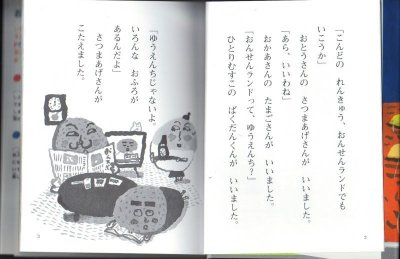 「こんどの　れんきゅう、おんせんランドでも
いこうか」
おとうさんの　さつまあげさんが　いいました。
「あら、いいわね」
おかあさんの　たまごさんが　いいました。
「おんせんランドって、ゆうえんち？」
ひとりむすこの　ばくだんくんが　いいました。
「ゆうえんちじゃないよ、
いろんな　おふろが
あるんだよ」
さつまあげさんが
こたえました。
2
3